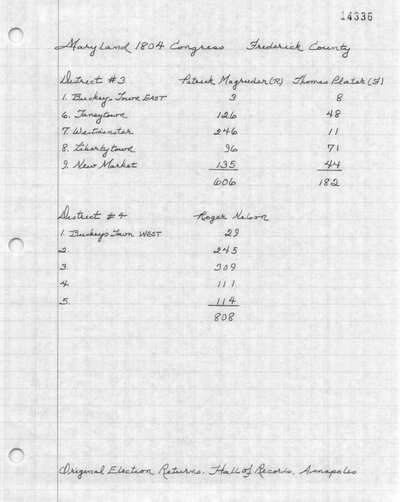 14336
Maryland 1804 Congress Frederick County
District #3 Patrick Magruder (R) Thomas Plater (F)
1. Buckeys Town EAST 3 8
6. Taneytown 126 48
7. Westminster 246 11
8. Libertytown 96 71
9. New Market 135 44
606 182
District #4 Roger Nelson
1. Buckeys Town WEST 29
2. 245
3. 309
4. 111
5. 114
808
Original Election Returns. Hall of Records, Annapolis